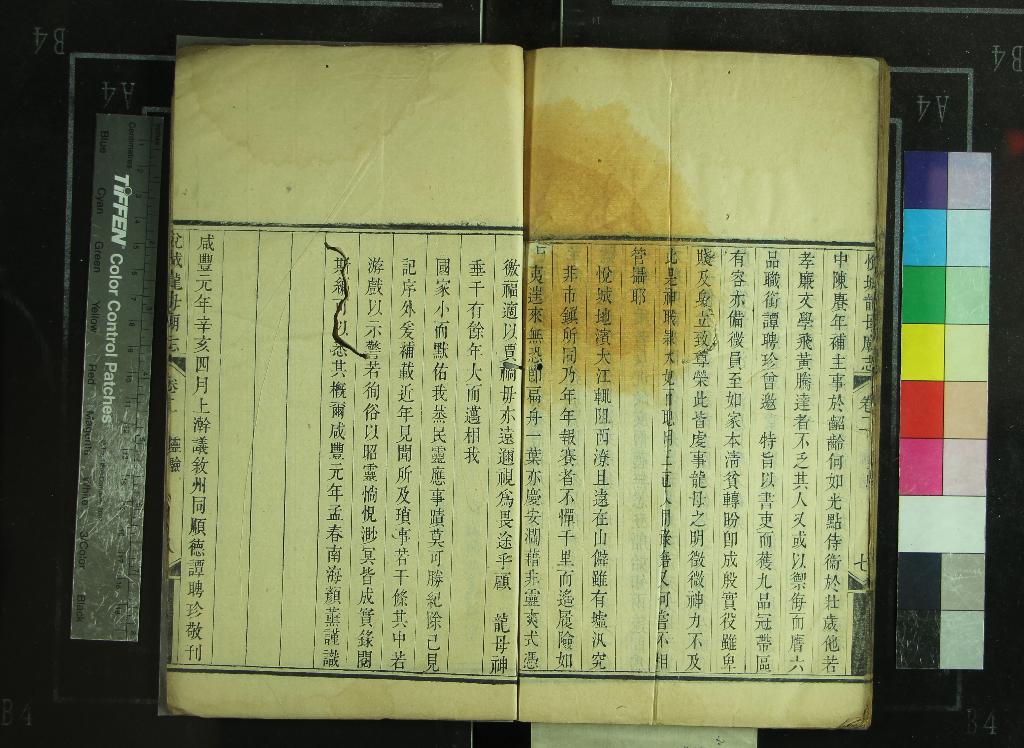 悅城龍母廟志 卷二
七
中陳賡年補主事於韶齡何如光點侍衛於壯歲他若
孝廉文學飛黃騰達者不乏其人又或以禦侮而膺六
品職銜譚聘珍曾邀 特旨以書吏而獲九品冠帶區
有容亦備微員至如家本清貧轉盼卽成殷實役雖卑
賤及身立致尊榮此皆虔事龍母之明徵微神力不及
此是神職
管攝耶
悅城地濱大江輒阻西潦且遠在山僻雖有墟汛究
非市鎮所同乃年年報賽者不憚千里而遙履險如
夷遄來無恐卽扁舟一葉亦慶安瀾藉非靈爽式憑
徼福適以賈禍毋亦遠邇視爲畏途乎顧 龍母神
垂千有餘年大而邁相我
國家小而默佑我蒸民靈應事蹟莫可勝紀除已見
記序外爰補載近年見聞所及瑣事若干條其中若
游戲以示警若徇俗以昭靈惝怳渺冥皆成實錄閱
斯編可以悉其概爾咸豐元年孟春南海顏薰謹識
咸豐元年辛亥四月上澣議敘州同順德譚聘珍敬刊
悅城龍母廟志 卷二 靈驗
TIFFEN Color Control Patches
Centimetres
Blue Cyan Green Yellow Red Magenta White 3/Color Black
A4
B4
A4
B4
B4
B4